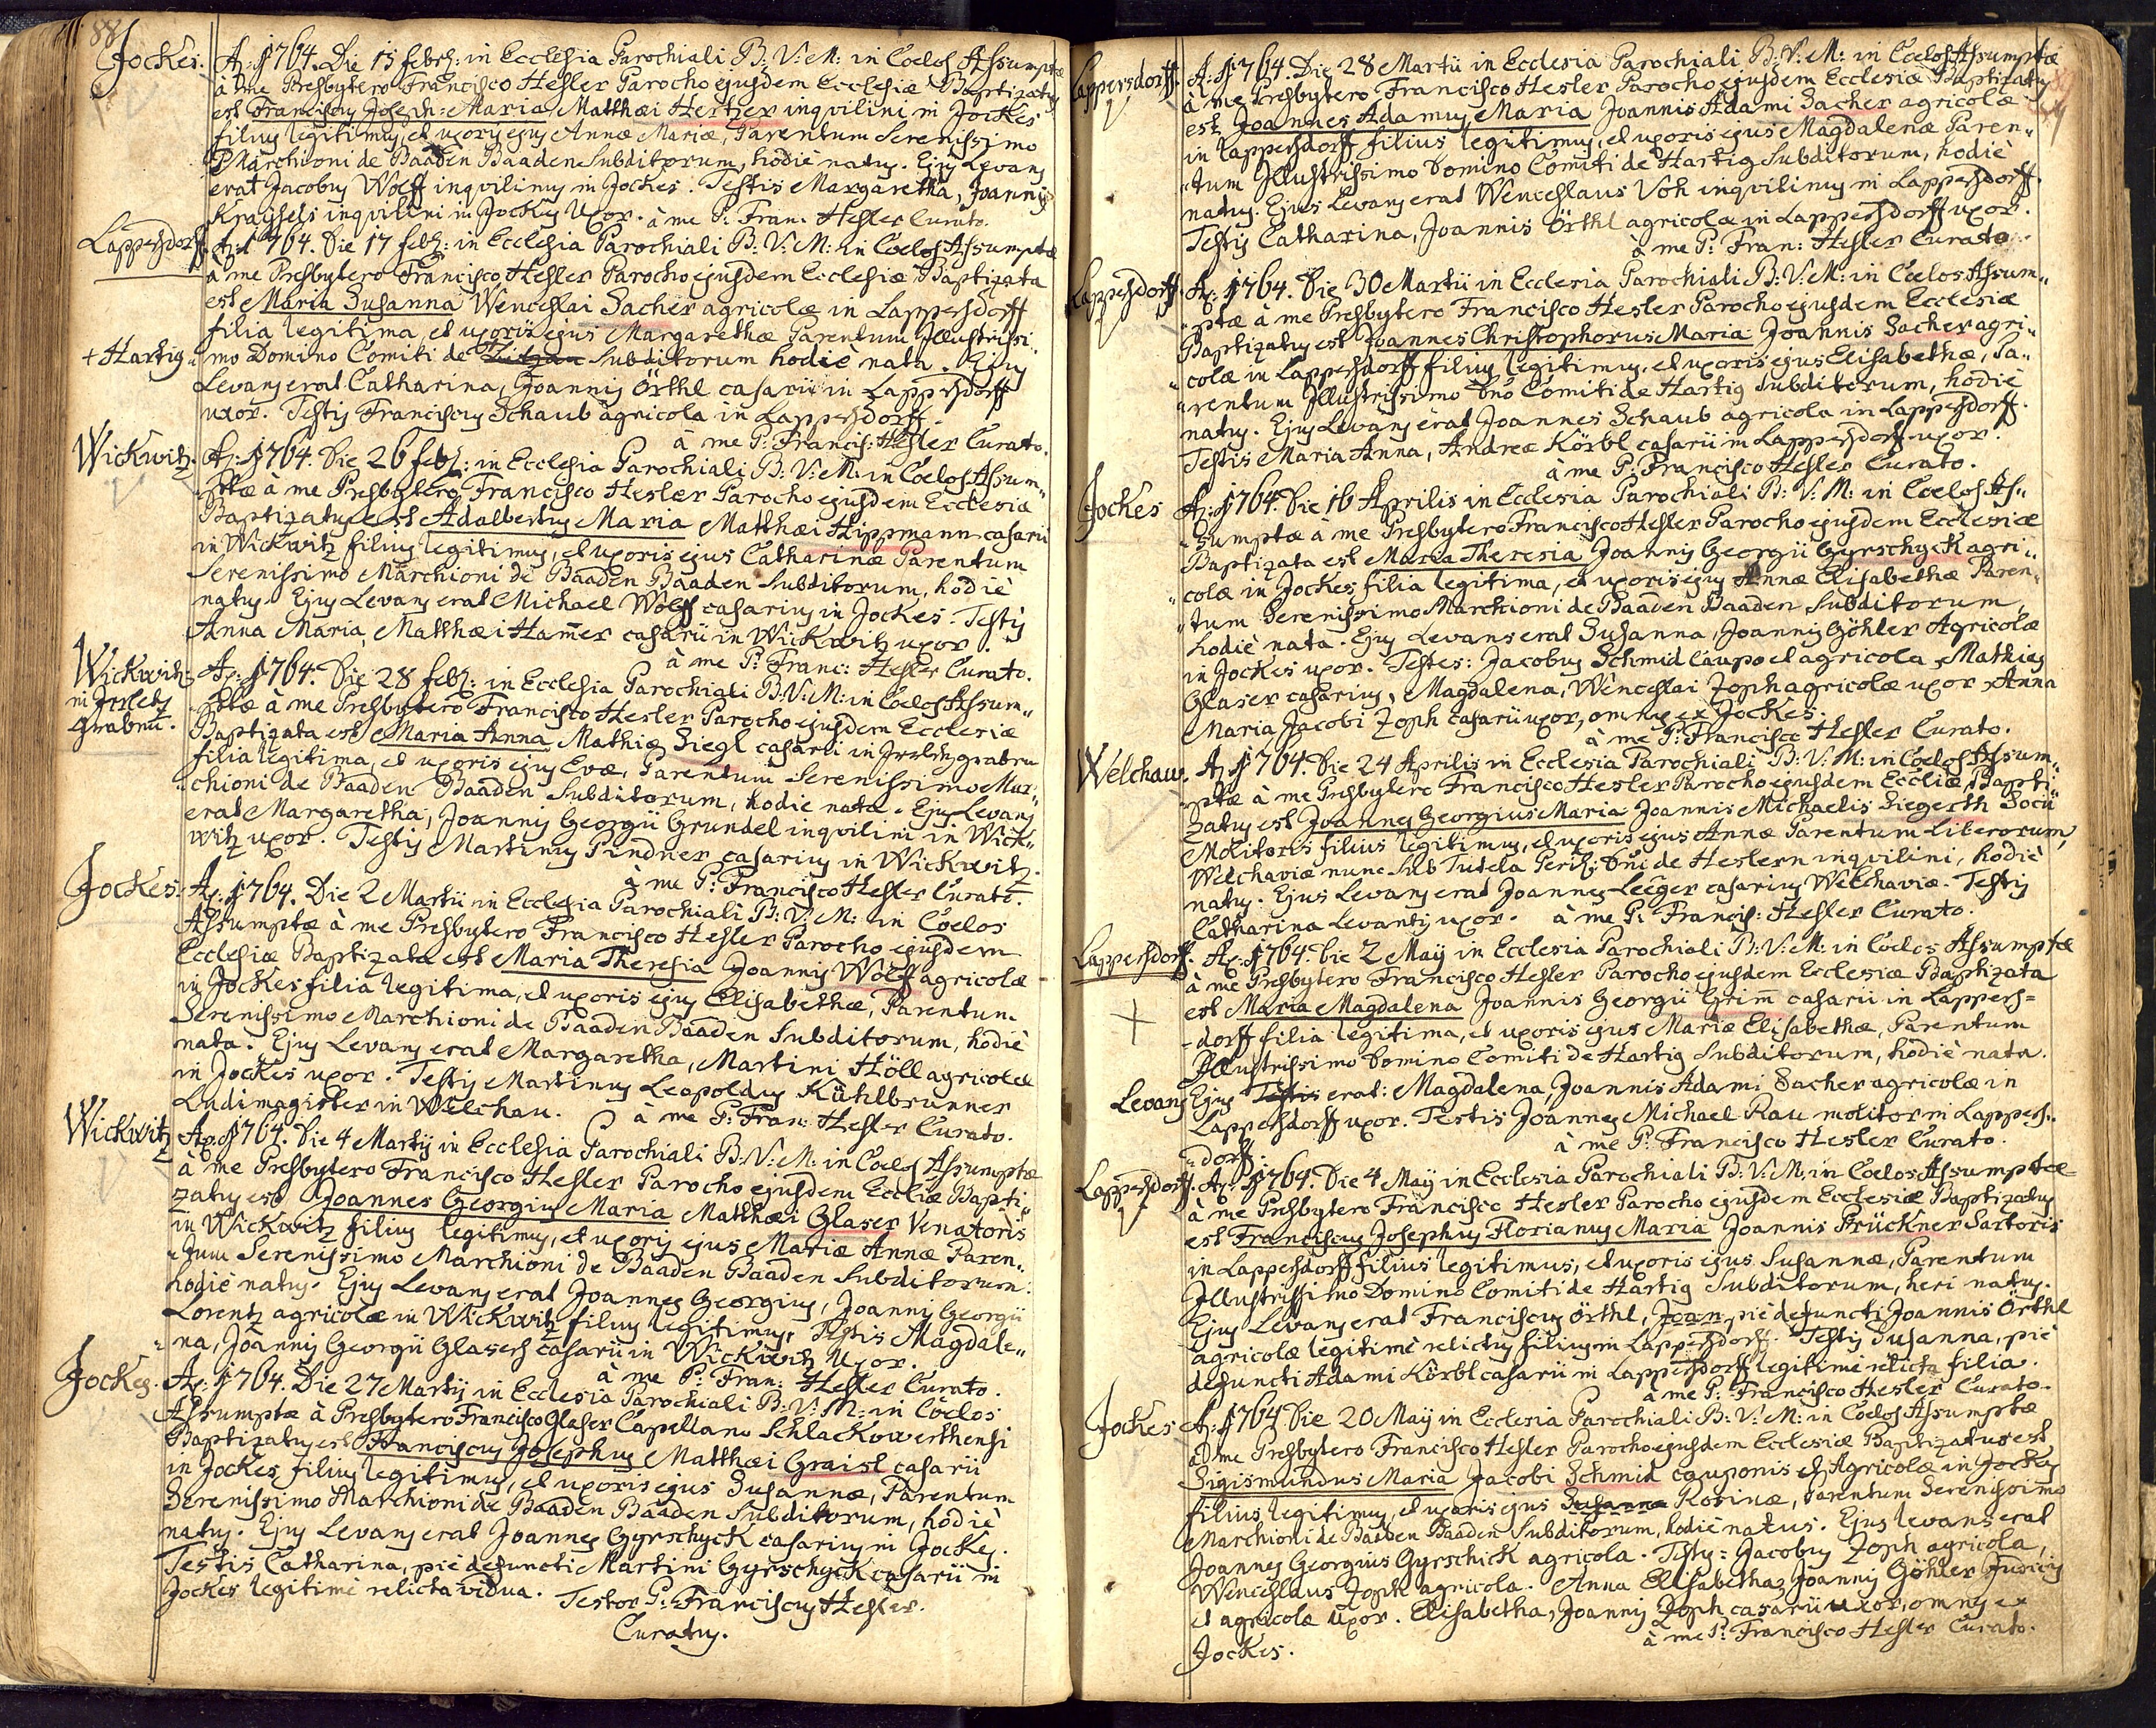 88
Jockes. A: 1764. Die 15 febr: in Ecclesia Parochiali B: V: M: in Coelos Assumptæ
à me Presbytero Francisco Hesler Parocho ejusdem Ecclesiæ Baptizatus
est Franciscus Joseph: Maria Matthæi Hertzer inqvilini in Jockes
filius legitimus, et uxoris ejus Annæ Mariæ, Parentum Serenissimo
Marchioni de Baaden Baaden Subditorum, hodiè natus. Ejus Levans
erat Jacobus Wolff inqvilinus in Jockes. Testis Margaretha, Joannis
Kraÿsels inqvilini in Jockes Uxor. à me P: Fran: Hesler Curato.
Lappersdorff. A: 1764. Die 17 febr: in Ecclesia Parochiali B: V: M: in Coelos Assumptæ
à me Presbytero Francisco Hesler Parocho ejusdem Ecclesiæ Baptizata
est Maria Susanna Wenceslai Sacher agricolæ in Lappersdorff
filia legitima, et uxoris ejus Margarethæ Parentum Illustrissi„
+ Hartig „mo Domino Comiti de Subditorum hodiè nata. Ejus
Levans erat Catharina, Joannis Örthl casarii in Lappersdorff
uxor. Testis Franciscus Schaub agricola in Lappersdorff.
à me P: Francis: Hesler Curato.
Wickwitz. A: 1764. Die 26 febr: in Ecclesia Parochiali B: V: M: in Coelos Assum„
„ptæ à me Presbytero Francisco Hesler Parocho ejusdem Ecclesiæ
Baptizatus est Adalbertus Maria Matthæi Hippmann casarii
in Wickwitz filius legitimus, et uxoris ejus Catharinæ Parentum
Serenissimo Marchioni de Baaden Baaden Subditorum, hodiè
natus. Ejus Levans erat Michael Wolff casarius in Jockes. Testis
Anna Maria, Matthæi Ham̃er casarii in Wickwitz uxor.
à me P: Franc: Hesler Curato.
Wickwitz A: 1764. Die 28 febr: in Ecclesia Parochiali B: V: M: in Coelos Assum„
in
grabnu. „ptæ à me Presbytero Francisco Hesler Parocho ejusdem Ecclesiæ
Baptizata est Maria Anna Mathiæ Siegl casarii in
filia legitima, et uxoris ejus Evæ, Parentum Serenissimo Mar„
„chioni de Baaden Baaden Subditorum, hodie nata. Ejus Levans
erat Margaretha, Joannis Georgii Grundel inqvilini in Wick„
witz uxor. Testis Martinus Pindner casarius in Wickwitz.
à me P: Francisco Hesler Curato.
Jockes. A: 1764. Die 2 Martii in Ecclesia Parochiali B: V: M: in Coelos
Assumptæ à me Presbytero Francisco Hesler Parocho ejusdem
Ecclesiæ Baptizata est Maria Theresia Joannis Wolff agricolæ
in Jockes filia legitima, et uxoris ejus Elisabethæ, Parentum
Serenissimo Marchioni de Baaden Baaden Subditorum, hodiè
nata. Ejus Levans erat Margaretha, Martini Höll agricolæ
in Jockes uxor. Testis Martinus Leopoldus Kühlbrunner
Ludimagister in Welchau. à me P: Fran: Hesler Curato.
Wickwitz A: 1764. Die 4 Martii in Ecclesia Parochiali B: V: M: in Coelos Assumptæ
à me Presbytero Francisco Hesler Parocho ejusdem Eccliæ Bapti„
zatus est Joannes Georgius Maria Matthæi Glaser Venatoris
in Wickwitz filius legitimus, et uxoris ejus Mariæ Annæ Paren„
„tum Serenissimo Marchioni de Baaden Baaden Subditorum.
hodiè natus. Ejus Levans erat Joannes Georgius, Joannis Georgii
Lorentz agricolæ in Wickwitz filius legitimus. Testis Magdale„
„na, Joannis Georgii Glasers casarii in Wickwitz Uxor.
à me P: Fran: Hesler Curato.
Jockes. A: 1764. Die 27 Martii in Ecclesia Parochiali B: V: M: in Coelos
Assumptæ à Presbytero Francisco Glaser Capellano Schlackowerthensi
Baptizatus est Franciscus Josephus Matthæi Graisl casarii
in Jockes filius legitimus, et uxoris ejus Susannæ, Parentum
Serenissimo Marchioni de Baaden Baaden Subditorum, hodiè
natus. Ejus Levans erat Joannes Gyrschyck casarius in Jockes.
Testis Catharina, piè defuncti Martini Gyrschyck casarii in
Jockes legitimè relicta vidua. Testor P: Franciscus Hesler.
Curatus.
Lappersdorff. A: 1764. Die 28 Martii in Ecclesia Parochiali B: V: M: in Coelos Assumptæ
à me Presbytero Francisco Hesler Parocho ejusdem Ecclesiæ Baptizatus
est Joannes Adamus Maria Joannis Adami Sacher agricolæ
in Lappersdorff filius legitimus, et uxoris ejus Magdalenæ Paren„
„tum Illustrissimo Domino Comiti de Hartig Subditorum, hodiè
natus. Ejus Levans erat Wenceslaus Voh inqvilinus in Lappersdorff.
Testis Catharina, Joannis Örthl agricolæ in Lappersdorff uxor.
à me P: Fran: Hesler Curato.
Lappersdorff. A: 1764. Die 30 Martii in Ecclesia Parochiali B: V: M: in Coelos Assum„
„ptæ à me Presbytero Francisco Hesler Parocho ejusdem Ecclesiæ
Baptizatus est Joannes Christophorus Maria Joannis Sacher agri„
„colæ in Lappersdorff filius legitimus, et uxoris ejus Elisabethæ, Pa„
„rentum Illustrissimo Dno Comiti de Hartig Subditorum, hodiè
natus. Ejus Levans erat Joannes Schaub agricola in Lappersdorff.
Testis Maria Anna, Andreæ Körbl casarii in Lappersdorff uxor.
à me P: Francisco Hesler Curato.
Jockes A: 1764. Die 16 Aprilis in Ecclesia Parochiali B: V: M: in Coelos As„
„sumptæ à me Presbytero Francisco Hesler Parocho ejusdem Ecclesiæ
Baptizata est Maria Theresia Joannis Georgii Gyrschyck agri„
„colæ in Jockes filia legitima, et uxoris ejus Annæ Elisabethæ Paren„
„tum Serenissimo Marchioni de Baaden Baaden Subditorum,
hodiè nata. Ejus Levans erat Susanna, Joannis Göhler Agricolæ
in Jockes uxor. Testes: Jacobus Schmid caupo et agricola, Mathias
Glaser casarius, Magdalena, Wenceslai Zoph agricolæ uxor, Anna
Maria Jacobi Zoph casarii uxor, omnes ex Jockes.
à me P: Francisco Hesler Curato.
Welchau. A: 1764. Die 24 Aprilis in Ecclesia Parochiali B: V: M: in Coelos Assum„
„ptæ à me Presbytero Francisco Hesler Parocho ejusdem Eccliæ, Bapti„
zatus est Joannes Georgius Maria Joannis Michaelis Siegerth Socii
Molitoris filius legitimus, et uxoris ejus Annæ Parentum Liberorum,
Welchaviæ nunc Sub Tutela Dni de Heslern inqvilini, hodiè
natus. Ejus Levans erat Joannes Leeger casarius Welchaviæ. Testis
Catharina Levantis uxor. à me P: Francis: Hesler Curato.
Lappersdorff. A: 1764. Die 2 Maÿ in Ecclesia Parochiali B: V: M: in Coelos Assumptæ
à me Presbytero Francisco Hesler Parocho ejusdem Ecclesiæ Baptizata
+ est Maria Magdalena Joannis Georgii Grim̃ casarii in Lappers=
-dorff filia legitima, et uxoris ejus Mariæ Elisabethæ, Parentum
Illustrissimo Domino Comiti de Hartig Subditorum, hodiè nata.
Levans Ejus Testis erat: Magdalena, Joannis Adami Sacher agricolæ in
Lappersdorff uxor. Testis Joannes Michael Rau molitor in Lappers„
„dorff. à me P: Francisco Hesler Curato.
Lappersdorff. A: 1764. Die 4 Maÿ in Ecclesia Parochiali B: V: M: in Coelos Assumptæ
à me Presbytero Francisco Hesler Parocho ejusdem Ecclesiæ Baptizatus
est Franciscus Josephus Florianus Maria Joannis Prückner Sartoris
in Lappersdorff filius legitimus, et uxoris ejus Susannæ, Parentum
Illustrissimo Domino Comiti de Hartig Subditorum, heri natus.
Ejus Levans erat Franciscus Örthl, Joan, piè defuncti Joannis Örthl
agricolæ legitimè relictus filius in Lappersdorff. Testis Susanna, piè
defuncti Adami Körbl casarii in Lappersdorff legitimè relicta filia.
à me P: Francisco Hesler Curato.
Jockes A: 1764 Die 20 Maÿ in Ecclesia Parochiali B: V: M: in Coelos Assumptæ
à me Presbytero Francisco Hesler Parocho ejusdem Ecclesiæ Baptizatus est
Sigismundus Maria Jacobi Schmid cauponis et Agricolæ in Jockes
filius legitimus, et uxoris ejus Susannæ Rosinæ, Parentum Serenissimo
Marchioni de Baaden Baaden Subditorum, hodiè natus. Ejus Levans erat
Joannes Georgius Gyrschick agricola. Testes: Jacobus Zoph agricola,
Wenceslaus Zoph agricola. Anna Elisabetha, Joannis Göhler Judicis
et agricolæ Uxor. Elisabetha, Joannis Zoph casarii uxor, omnes ex
Jockes. à me P: Francisco Hesler Curato.